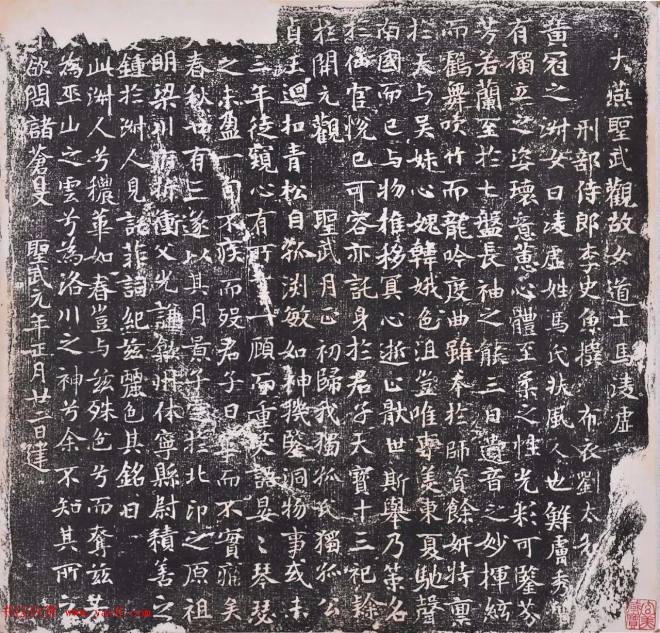 大燕聖武觀故女道士馬凌虛
刑部侍郎李史魚撰 布衣劉太和
黃冠之淑女曰凌虛姓馬氏扶風人也鮮膚秀
有獨立之姿瓌意蕙心體至柔之性光彩可鑒芬
芳若蘭至於七盤長袖之能三日遺音之妙揮絃
而鶴舞吹竹而龍吟度曲雖本於師資餘妍特稟
於天与吳妹心媿韓娥色沮豈唯專美東夏馳聲
南國而已与物推移冥心逝止厭世斯舉乃策名
於仙官悅已可容亦託身於君子天寶十三祀
於開元觀 聖武月正初歸我獨孤氏獨孤公
貞玉迴扣青松自孤渊敏如神機鑒洞物事或未
三年徒窺心有所 一顧而重笑語晏晏琴瑟
之未盈一旬不疾而歿君子曰華而不實痛矣
春秋廿有三遂以其月景子 於北邙之原祖
明梁川府折衝父光謙歙州休寧縣尉積善之
鍾於淑人見託菲詞紀兹麗色其銘曰
此淑人兮穠華如春豈与兹殊色兮而奪兹
為巫山之雲兮為洛川之神兮余不知其所
欲問諸蒼旻 聖武元年正月廿二日建